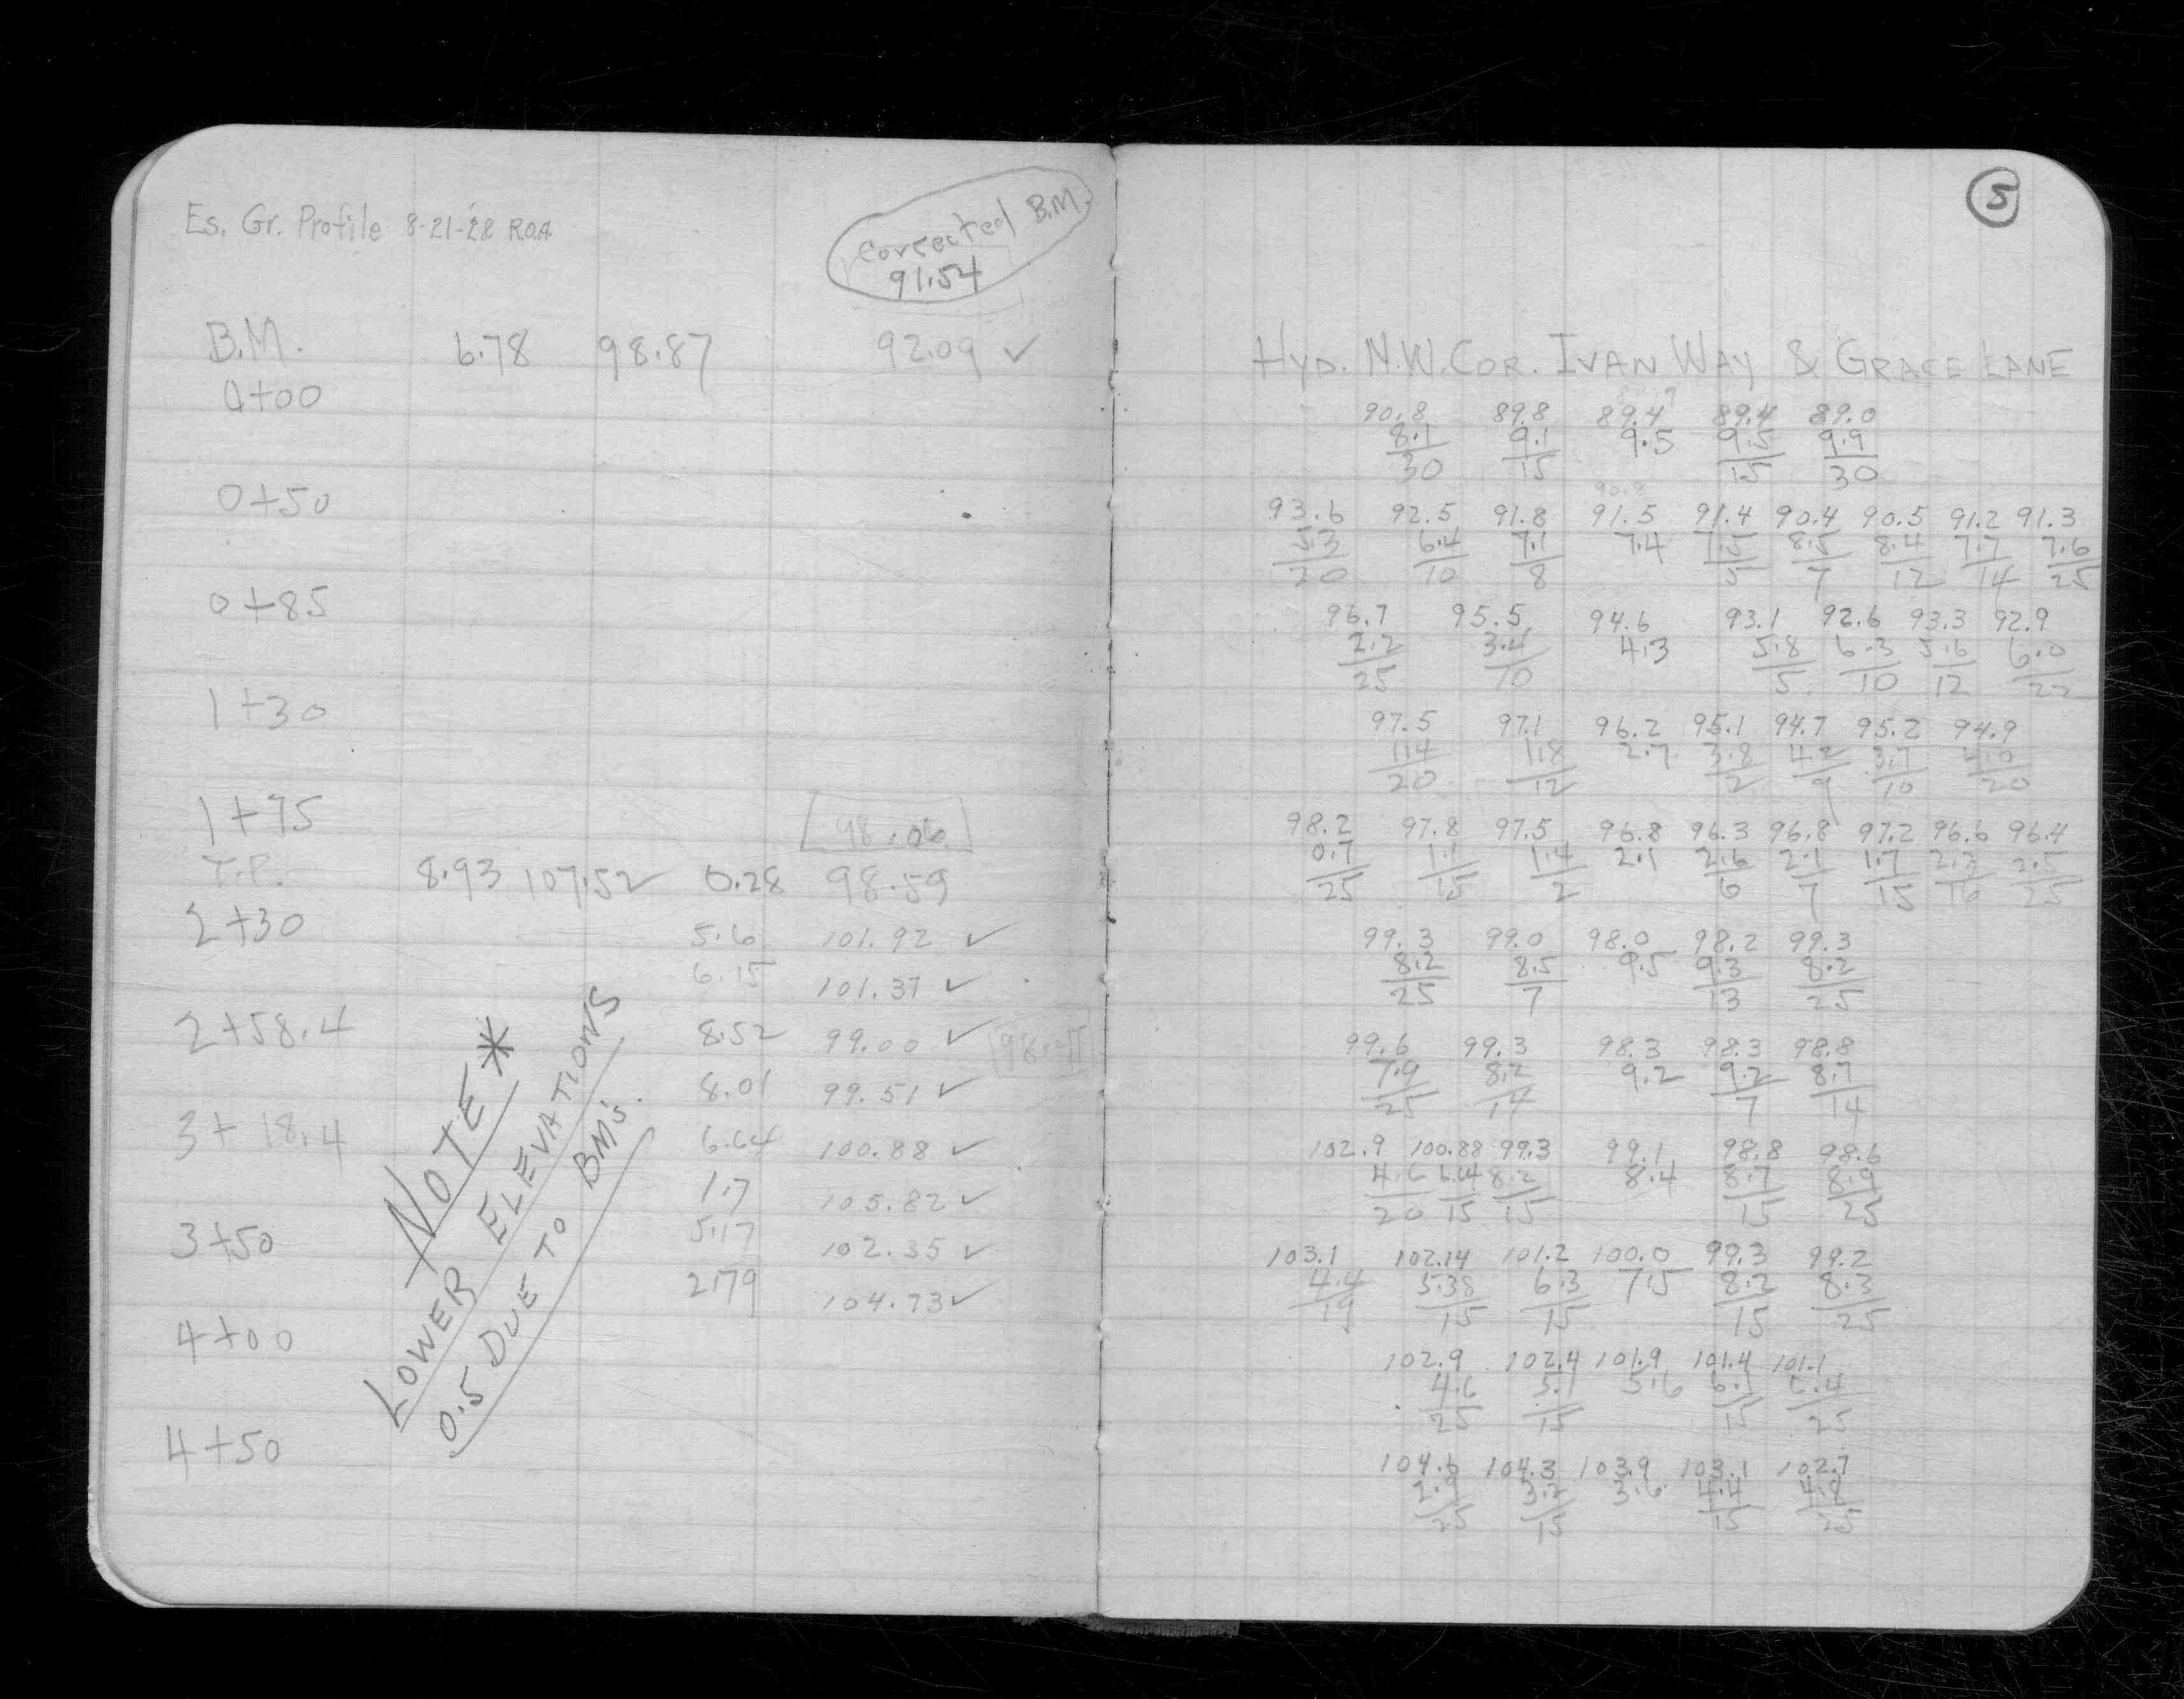 Es. Gr. Profile 8-21-28 R.O.A.
Corrected B.M.
91.54
B.M. 6.78 98.87 92.09 ✓
0+00
0+50
0+85
1+30
1+75
[98.06]
T.P. 8.93 107.52 ✓ 0.28 98.59
2+30 5.6 101.92 ✓
6.15 101.37 ✓
2+58.4 8.52 99.00 ✓
8.01 99.51 ✓
3+18.4 6.64 100.88 ✓
1.7 105.82 ✓
3+50 5.17 102.35 ✓
2.79 104.73 ✓
4+00
4+50
NOTE *
LOWER ELEVATIONS
0.5 DUE TO BM's.
5
HYD. N.W. COR. IVAN WAY & GRACE LANE
90.8 89.8 89.4 89.4 89.0
8.1 9.1 9.5 9.5 9.9
30 15 15 30
93.6 92.5 91.8 91.5 91.4 90.4 90.5 91.2 91.3
5.3 6.4 7.1 7.4 7.5 8.5 8.4 7.7 7.6
20 10 8 5 7 12 14 25
96.7 95.5 94.6 93.1 92.6 93.3 92.9
2.2 3.4 4.3 5.8 6.3 5.6 6.0
25 10 5 10 12 22
97.5 97.1 96.2 95.1 94.7 95.2 94.9
1.4 1.8 2.7 3.8 4.2 3.7 4.0
20 12 2 9 10 20
98.2 97.8 97.5 96.8 96.3 96.8 97.2 96.6 96.4
0.7 1.1 1.4 2.1 2.6 2.1 1.7 2.3 2.5
25 15 2 6 7 15 16 25
99.3 99.0 98.0 98.2 99.3
8.2 8.5 9.5 9.3 8.2
25 7 13 25
99.6 99.3 98.3 98.3 98.8
7.9 8.2 9.2 9.2 8.7
25 14 7 14
102.9 100.88 99.3 99.1 98.8 98.6
4.6 6.64 8.2 8.4 8.7 8.9
20 15 15 15 25
103.1 102.14 101.2 100.0 99.3 99.2
4.4 5.38 6.3 7.5 8.2 8.3
19 15 15 15 25
102.9 102.4 101.9 101.4 101.1
4.6 5.1 5.6 6.1 6.4
25 15 15 25
104.6 104.3 103.9 103.1 102.7
2.9 3.2 3.6 4.4 4.8
25 15 15 25